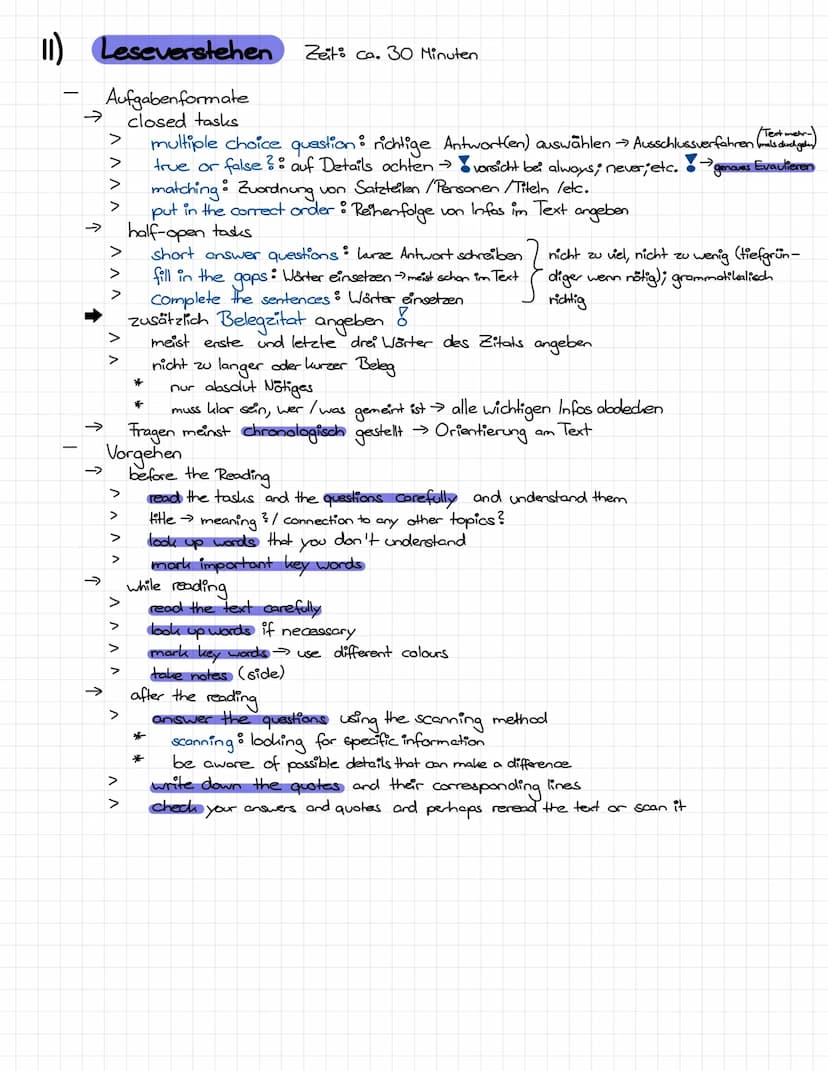 11) Leseverstehen Zeit: ca. 30 Minuten
– Aufgabenformate
→ closed tasks
> multiple choice question: richtige Antwort(en) auswählen → Ausschlussverfahren (Text mehr-mals durchgehen)
> true or false?: auf Details achten → ! vorsicht bei always; never; etc. ! → genaues Evaulieren
> matching: Zuordnung von Satzteilen /Personen /Titeln /etc.
> put in the correct order: Reihenfolge von Infos im Text angeben
→ half-open tasks
> short answer questions: kurze Antwort schreiben } nicht zu viel, nicht zu wenig (tiefgrün-
> fill in the gaps: Wörter einsetzen → meist schon im Text } diger wenn nötig); grammatikalisch
> complete the sentences: Wörter einsetzen } richtig
➡ zusätzlich Belegzitat angeben !
> meist erste und letzte drei Wörter des Zitats angeben
> nicht zu langer oder kurzer Beleg
* nur absolut Nötiges
* muss klar sein, wer / was gemeint ist → alle wichtigen Infos abdecken
→ Fragen meinst chronologisch gestellt → Orientierung am Text
– Vorgehen
→ before the Reading
> read the tasks and the questions carefully and understand them
> title → meaning?/ connection to any other topics?
> look up words that you don't understand
> mark important key words
→ while reading
> read the text carefully
> look up words if necessary
> mark key words → use different colours
> take notes (side)
→ after the reading
> answer the questions using the scanning method
* scanning: looking for specific information
* be aware of possible details that can make a difference
> write down the quotes and their corresponding lines
> check your answers and quotes and perhaps reread the text or scan it